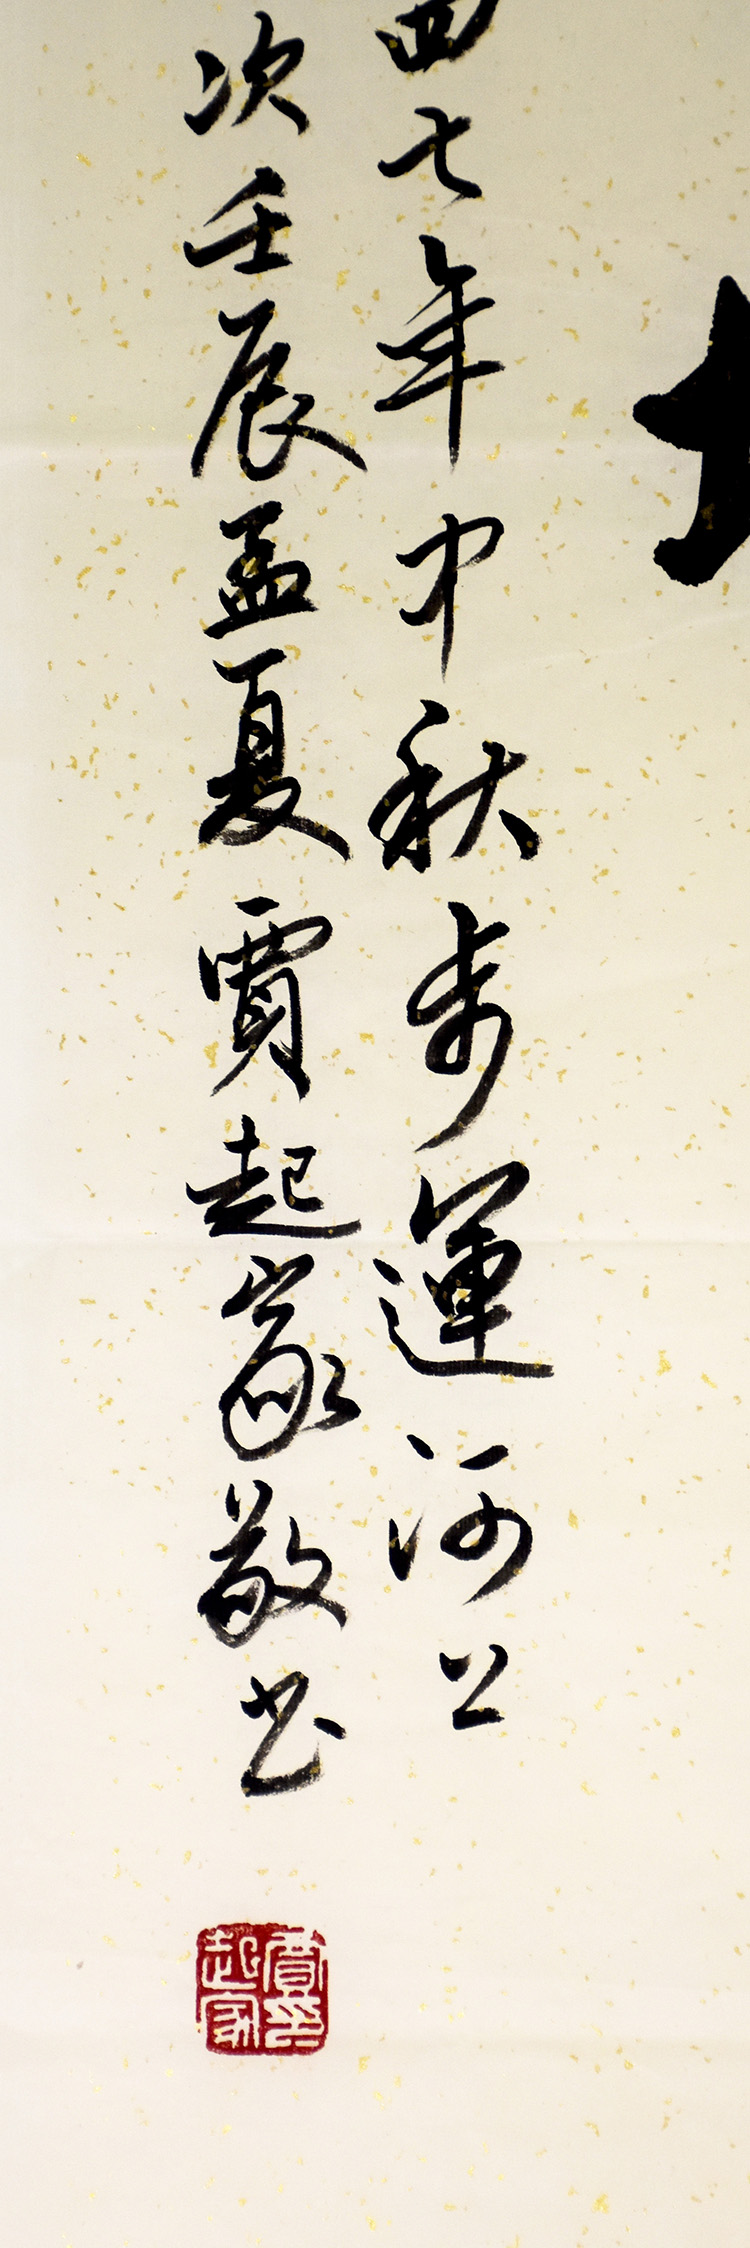 四七年中秋步運河公
次壬辰孟夏賈起家敬书
賈印起家